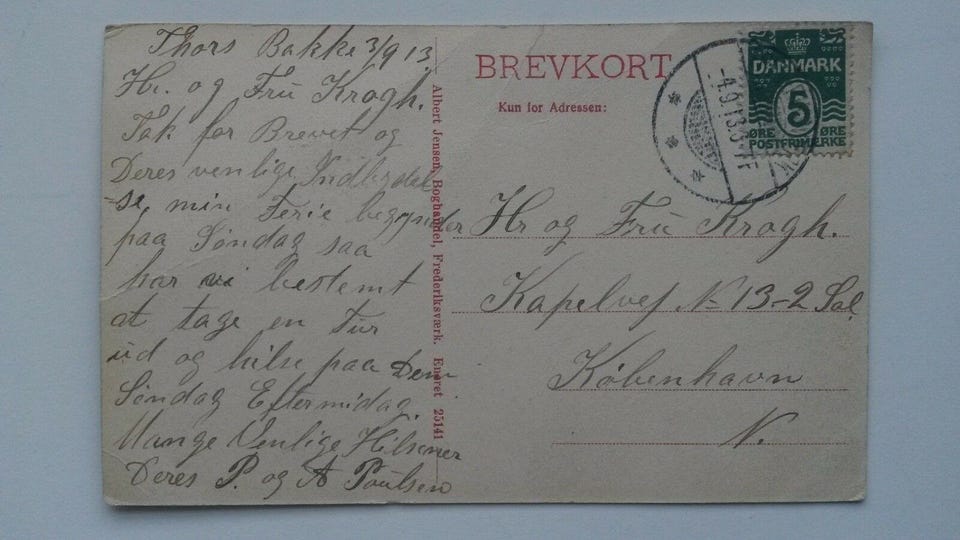 Thors Bakke 3/9 13
Hr. og Fru Krogh.
Tak for Brevet og
Deres venlige Indbydel
-se, min Ferie begynder
paa Søndag saa
har vi bestemt
at tage en Tur
ud og hilse paa Dem
Søndag Eftermidag.
Mange Venlige Hilsener
Deres P. og A Poulsen
Albert Jensen, Boghandel, Frederiksværk. Eneret 25141
BREVKORT
Kun for Adressen:
DANMARK
5
ØRE ØRE
POSTFRIMÆRKE
-4.9.13.
Hr og Fru Krogh.
Kapelvej N- 13-2 Sal.
København
N.